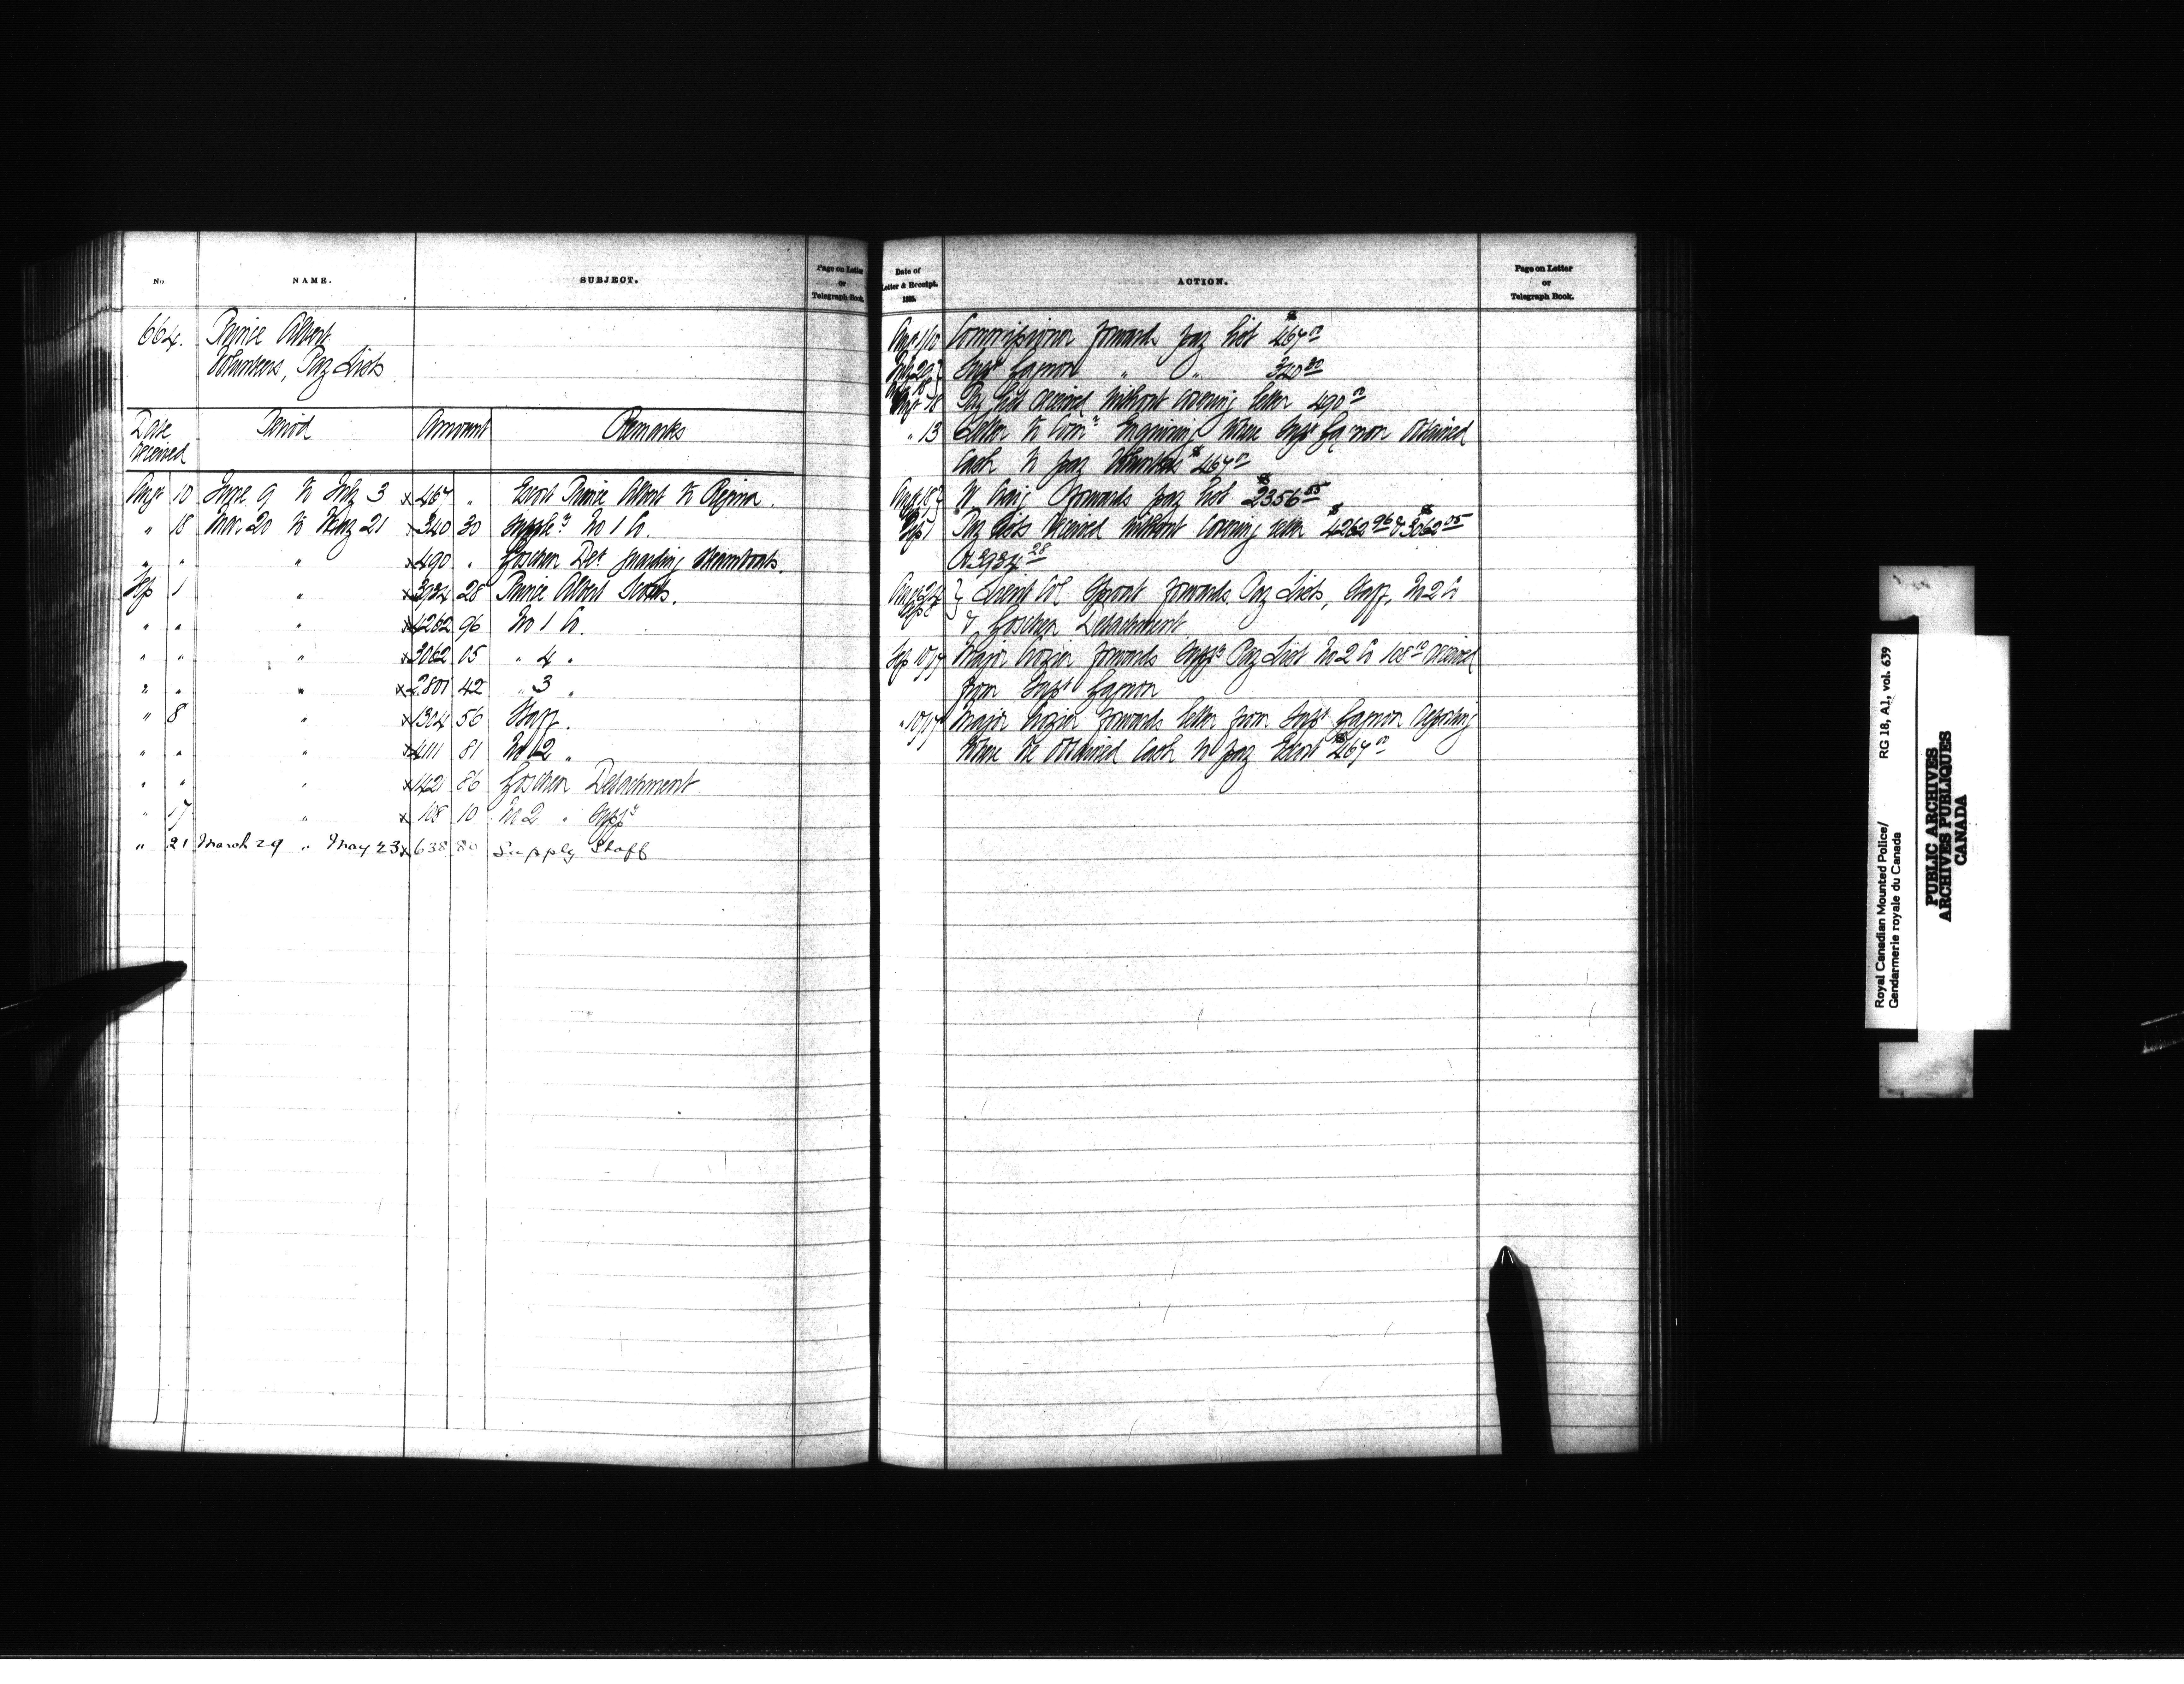 No. NAME. SUBJECT. Page on Letter or Telegraph Book.
664. Prince Albert
Volunteers, Pay Lists
Date received Period Amount Remarks
Augt 10 June 9 to July 3 x 467 " Escort Prince Albert to Regina.
" 18 Mar. 20 to May 21 x 340 30 Suppley No 1 Co.
" " " x 490 " Goschen Det guarding Steamboats.
Sep 1 " x 3934 28 Prince Albert Scouts.
" " " x 4262 96 No 1 Co.
" " " x 3062 05 " 4 "
" " " x 2801 42 " 3 "
" 8 " x 1304 56 Staff.
" " " x 4111 81 No 2 "
" " " x 1421 86 Goschen Detachment
" 17 " x 108 10 No 2 "
" 21 March 29 " May 23 x 638 80 Supply Staff
Date of Letter & Receipt. 1885. ACTION. Page on Letter or Telegraph Book.
Augt 1/10 Commissioner forwards pay list $467 00
Supt Gagnon " "
Augt 18 Pay list received without covering letter 490 00
" 13 Letter to Comr Enquiring where Supt Gagnon obtained
Cash to pay Volunteers $467 00
W Craig forwards pay list $2356 55
Sep 1 Pay lists received without covering letter $4262 96 & $3062 05
& 3934 28
Lieut Col Sproat forwards Pay Lists, Staff, No 2 Co
& Goschen Detachment
Sep 10/17 Major Crozier forwards Suppy Pay List No 2 Co 108 10 received
from Supt Gagnon
" 10/17 Major Crozier forwards letter from Supt Gagnon reporting
where he obtained Cash to pay Escort $467 00
Royal Canadian Mounted Police/
Gendarmerie royale du Canada
RG 18, A1, vol. 639
PUBLIC ARCHIVES
ARCHIVES PUBLIQUES
CANADA